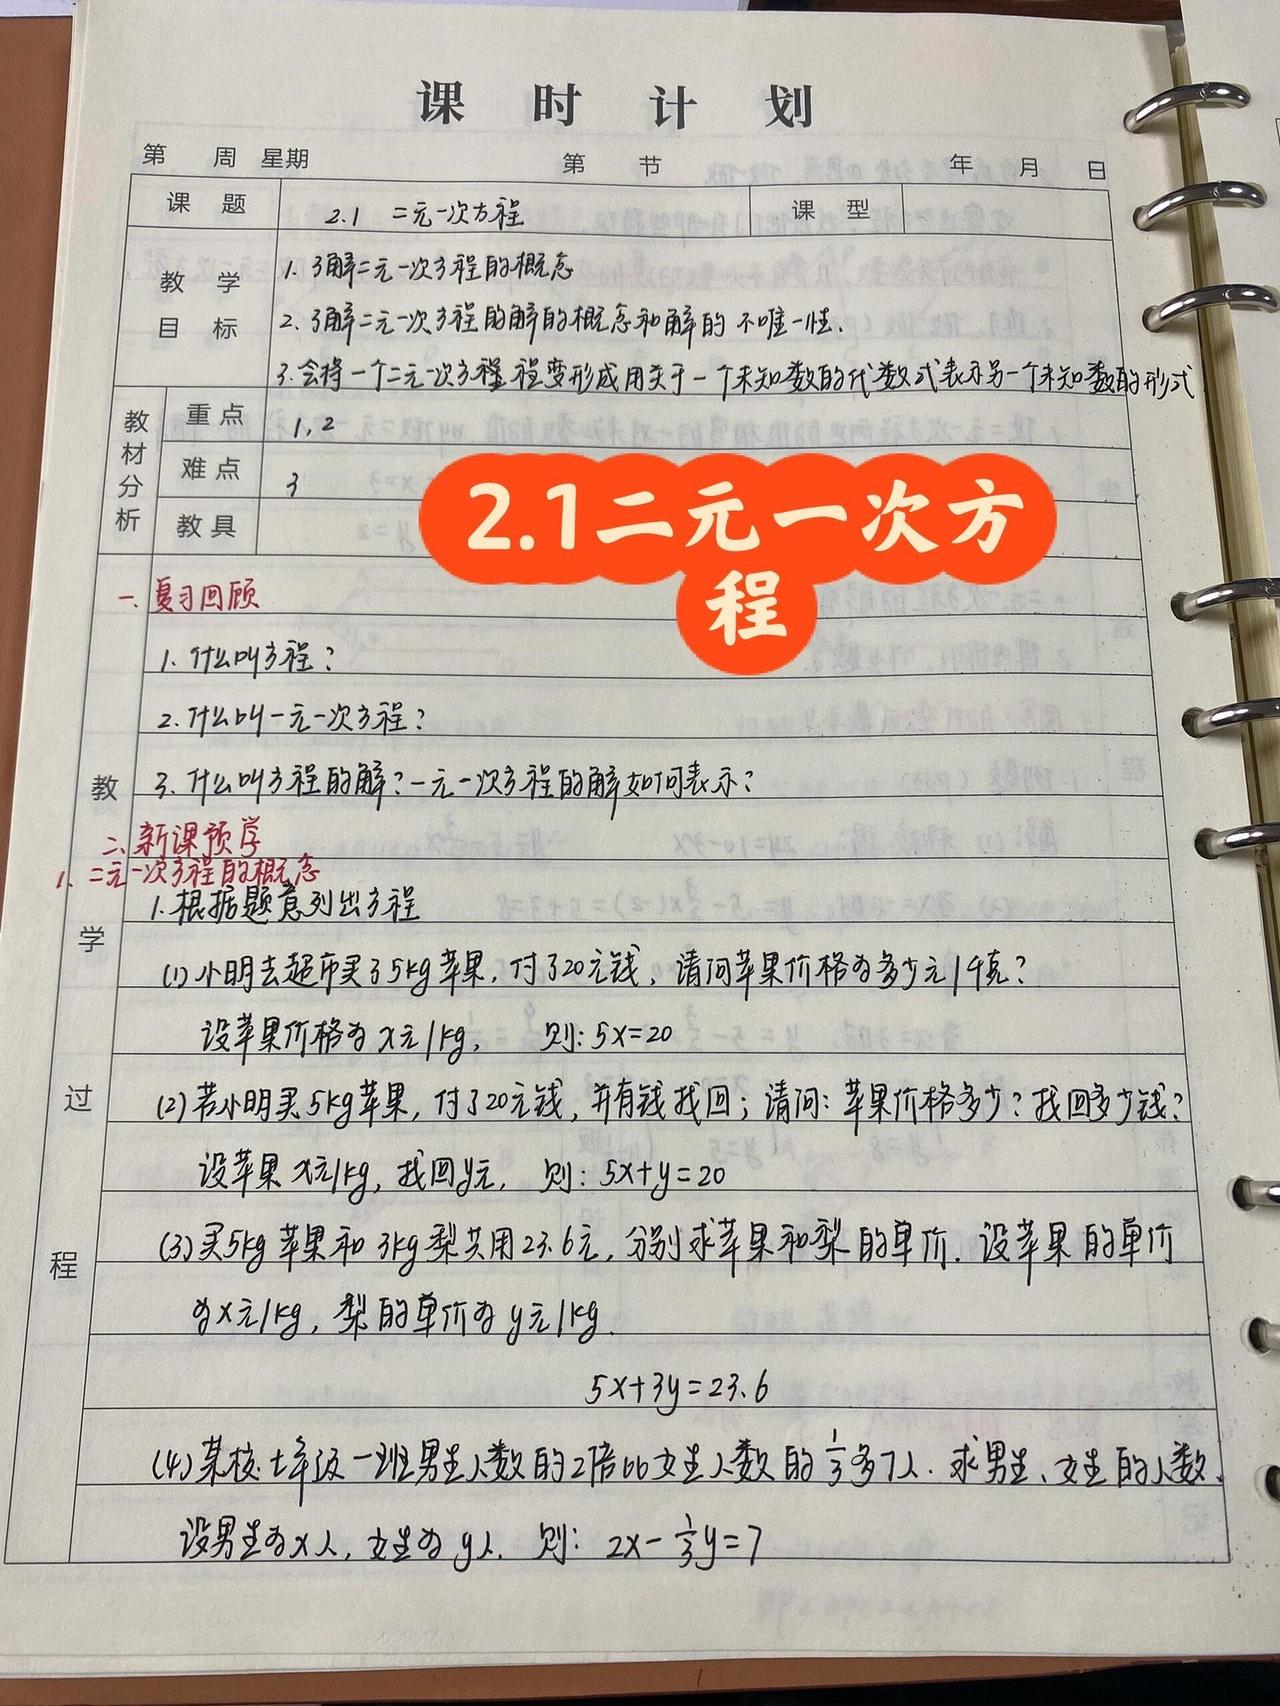 课时计划
第 周 星期 第 节 年 月 日
课题 2.1 二元一次方程 课型
教学目标 1. 了解二元一次方程的概念
2. 了解二元一次方程的解的概念和解的不唯一性.
3. 会将一个二元一次方程 程变形成用关于一个未知数的代数式表示另一个未知数的形式
教材分析 重点 1, 2
难点 3
教具
2.1二元一次方
程
一. 复习回顾
1. 什么叫方程?
2. 什么叫一元一次方程?
3. 什么叫方程的解? 一元一次方程的解如何表示?
教学过程
二. 新课预学
1. 二元一次方程的概念
1. 根据题意列出方程
(1) 小明去超市买了5kg苹果, 付了20元钱, 请问苹果价格为多少元/千克?
设苹果价格为x元/kg, 则: 5x=20
(2) 若小明买5kg苹果, 付了20元钱, 并有钱找回; 请问: 苹果价格多少? 找回多少钱?
设苹果x元/kg, 找回y元, 则: 5x+y=20
(3) 买5kg苹果和3kg梨共用23.6元, 分别求苹果和梨的单价. 设苹果的单价
为x元/kg, 梨的单价为y元/kg.
5x+3y=23.6
(4) 某校七年级一班男生人数的2倍比女生人数的1/3多7人. 求男生、女生的人数.
设男生为x人, 女生为y人. 则: 2x-1/3y=7